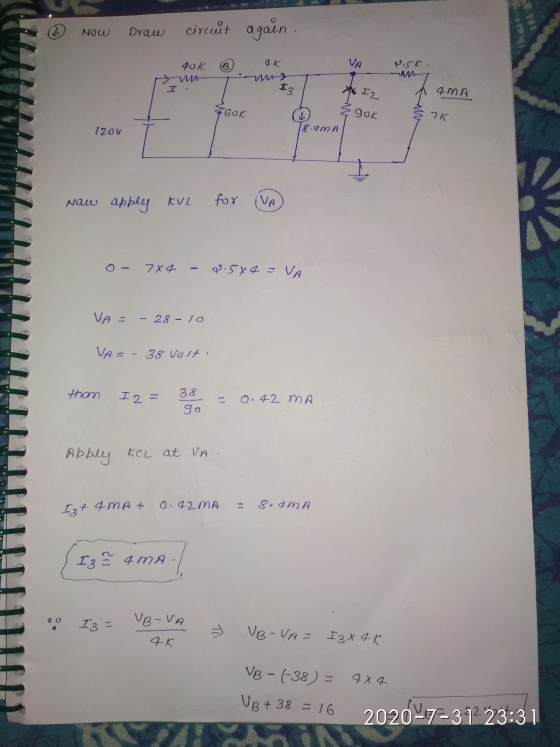 (b) Now Draw circuit again.
40K B 4K VA 2.5K
I I3 I2 4mA
60K 8.4mA 90K 7K
120V
Now apply KVL for VA
0 - 7×4 - 2.5×4 = VA
VA = - 28 - 10
VA = - 38 Volt.
then I2 = 38/90 = 0.42 mA.
Apply KCL at VA.
I3 + 4mA + 0.42mA = 8.4mA
I3 ≅ 4mA.
∵ I3 = (VB - VA)/4K ⇒ VB - VA = I3 × 4K
VB - (-38) = 4×4
VB + 38 = 16
2020-7-31 23:31